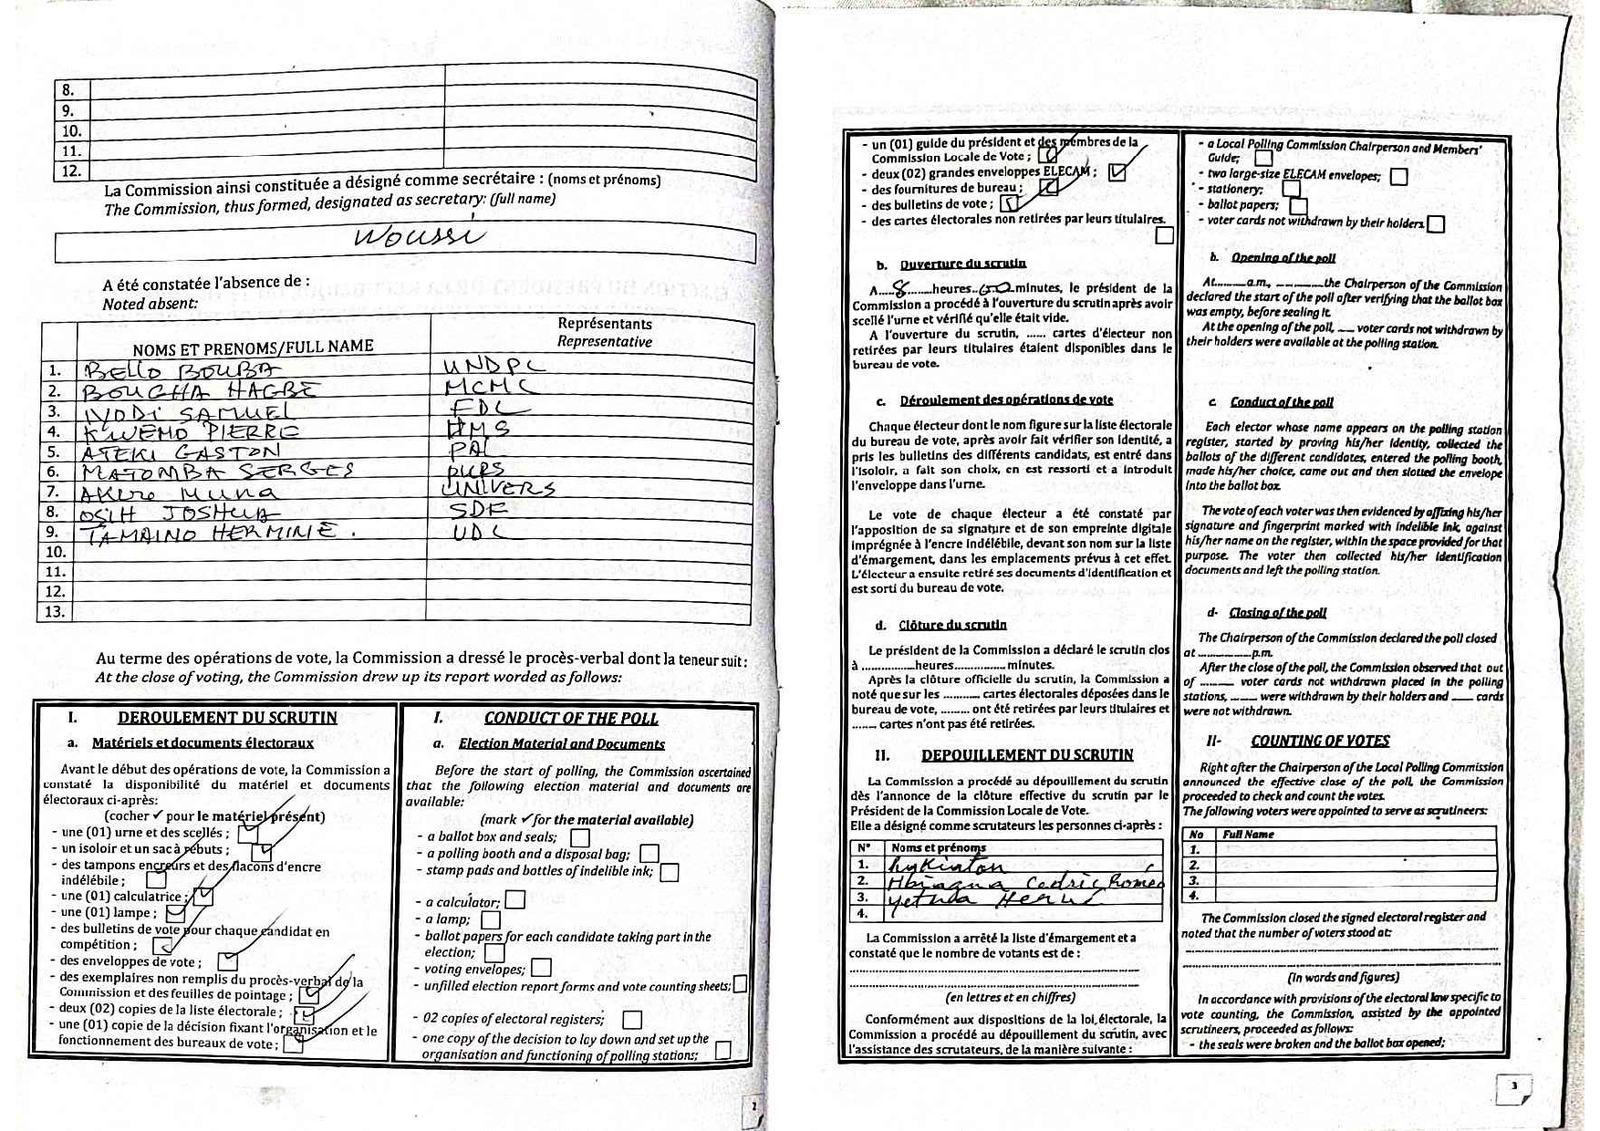 8.
9.
10.
11.
12.
La Commission ainsi constituée a désigné comme secrétaire : (noms et prénoms)
The Commission, thus formed, designated as secretary: (full name)
Woussi
A été constatée l'absence de :
Noted absent:
NOMS ET PRENOMS/FULL NAME
Représentants
Representative
1. BELLO BOUBA UNDPC
2. BOUGHA HAGBE MCMC
3. IYODI SAMUEL FDC
4. KWEMO PIERRE UMS
5. ATEKI GASTON PAL
6. MATOMBA SERGES PURS
7. Akere Muna UNIVERS
8. OSIH JOSHUA SDF
9. TAMAINO HERMINE. UDC
10.
11.
12.
13.
Au terme des opérations de vote, la Commission a dressé le procès-verbal dont la teneur suit:
At the close of voting, the Commission drew up its report worded as follows:
I. DEROULEMENT DU SCRUTIN
a. Matériels et documents électoraux
Avant le début des opérations de vote, la Commission a
constaté la disponibilité du matériel et documents
électoraux ci-après:
(cocher ✓ pour le matériel présent)
- une (01) urne et des scellés ;
- un isoloir et un sac à rebuts ;
- des tampons encreurs et des flacons d'encre
indélébile ;
- une (01) calculatrice ;
- une (01) lampe ;
- des bulletins de vote pour chaque candidat en
compétition ;
- des enveloppes de vote ;
- des exemplaires non remplis du procès-verbal de la
Commission et des feuilles de pointage ;
- deux (02) copies de la liste électorale ;
- une (01) copie de la décision fixant l'organisation et le
fonctionnement des bureaux de vote ;
I. CONDUCT OF THE POLL
a. Election Material and Documents
Before the start of polling, the Commission ascertained
that the following election material and documents are
available:
(mark ✓ for the material available)
- a ballot box and seals;
- a polling booth and a disposal bag;
- stamp pads and bottles of indelible ink;
- a calculator;
- a lamp;
- ballot papers for each candidate taking part in the
election;
- voting envelopes;
- unfilled election report forms and vote counting sheets;
- 02 copies of electoral registers;
- one copy of the decision to lay down and set up the
organisation and functioning of polling stations;
2
- un (01) guide du président et des membres de la
Commission Locale de Vote ;
- deux (02) grandes enveloppes ELECAM ;
- des fournitures de bureau ;
- des bulletins de vote ;
- des cartes électorales non retirées par leurs titulaires.
b. Ouverture du scrutin
A.....8......heures..00..minutes, le président de la
Commission a procédé à l'ouverture du scrutin après avoir
scellé l'urne et vérifié qu'elle était vide.
A l'ouverture du scrutin, ...... cartes d'électeur non
retirées par leurs titulaires étaient disponibles dans le
bureau de vote.
c. Déroulement des opérations de vote
Chaque électeur dont le nom figure sur la liste électorale
du bureau de vote, après avoir fait vérifier son identité, a
pris les bulletins des différents candidats, est entré dans
l'isoloir, a fait son choix, en est ressorti et a introduit
l'enveloppe dans l'urne.
Le vote de chaque électeur a été constaté par
l'apposition de sa signature et de son empreinte digitale
imprégnée à l'encre indélébile, devant son nom sur la liste
d'émargement, dans les emplacements prévus à cet effet.
L'électeur a ensuite retiré ses documents d'identification et
est sorti du bureau de vote.
d. Clôture du scrutin
Le président de la Commission a déclaré le scrutin clos
à ..............heures.............. minutes.
Après la clôture officielle du scrutin, la Commission a
noté que sur les .......... cartes électorales déposées dans le
bureau de vote, ........ ont été retirées par leurs titulaires et
....... cartes n'ont pas été retirées.
II. DEPOUILLEMENT DU SCRUTIN
La Commission a procédé au dépouillement du scrutin
dès l'annonce de la clôture effective du scrutin par le
Président de la Commission Locale de Vote.
Elle a désigné comme scrutateurs les personnes ci-après :
N° Noms et prénoms
1.
2. Cedric Romeo
3.
4.
La Commission a arrêté la liste d'émargement et a
constaté que le nombre de votants est de :
(en lettres et en chiffres)
Conformément aux dispositions de la loi, électorale, la
Commission a procédé au dépouillement du scrutin, avec
l'assistance des scrutateurs, de la manière suivante :
- a Local Polling Commission Chairperson and Members'
Guide;
- two large-size ELECAM envelopes;
- stationery;
- ballot papers;
- voter cards not withdrawn by their holders.
b. Opening of the poll
At..........a.m, ..........the Chairperson of the Commission
declared the start of the poll after verifying that the ballot box
was empty, before sealing it.
At the opening of the poll, ___ voter cards not withdrawn by
their holders were available at the polling station.
c Conduct of the poll
Each elector whose name appears on the polling station
register, started by proving his/her identity, collected the
ballots of the different candidates, entered the polling booth,
made his/her choice, came out and then slotted the envelope
into the ballot box.
The vote of each voter was then evidenced by affixing his/her
signature and fingerprint marked with indelible ink, against
his/her name on the register, within the space provided for that
purpose. The voter then collected his/her identification
documents and left the polling station.
d- Closing of the poll
The Chairperson of the Commission declared the poll closed
at ..............p.m.
After the close of the poll, the Commission observed that out
of ........ voter cards not withdrawn placed in the polling
stations, ...... were withdrawn by their holders and ...... cards
were not withdrawn.
II- COUNTING OF VOTES
Right after the Chairperson of the Local Polling Commission
announced the effective close of the poll, the Commission
proceeded to check and count the votes.
The following voters were appointed to serve as scrutineers:
No Full Name
1.
2.
3.
4.
The Commission closed the signed electoral register and
noted that the number of voters stood at:
(In words and figures)
In accordance with provisions of the electoral law specific to
vote counting, the Commission, assisted by the appointed
scrutineers, proceeded as follows:
- the seals were broken and the ballot box opened;
3